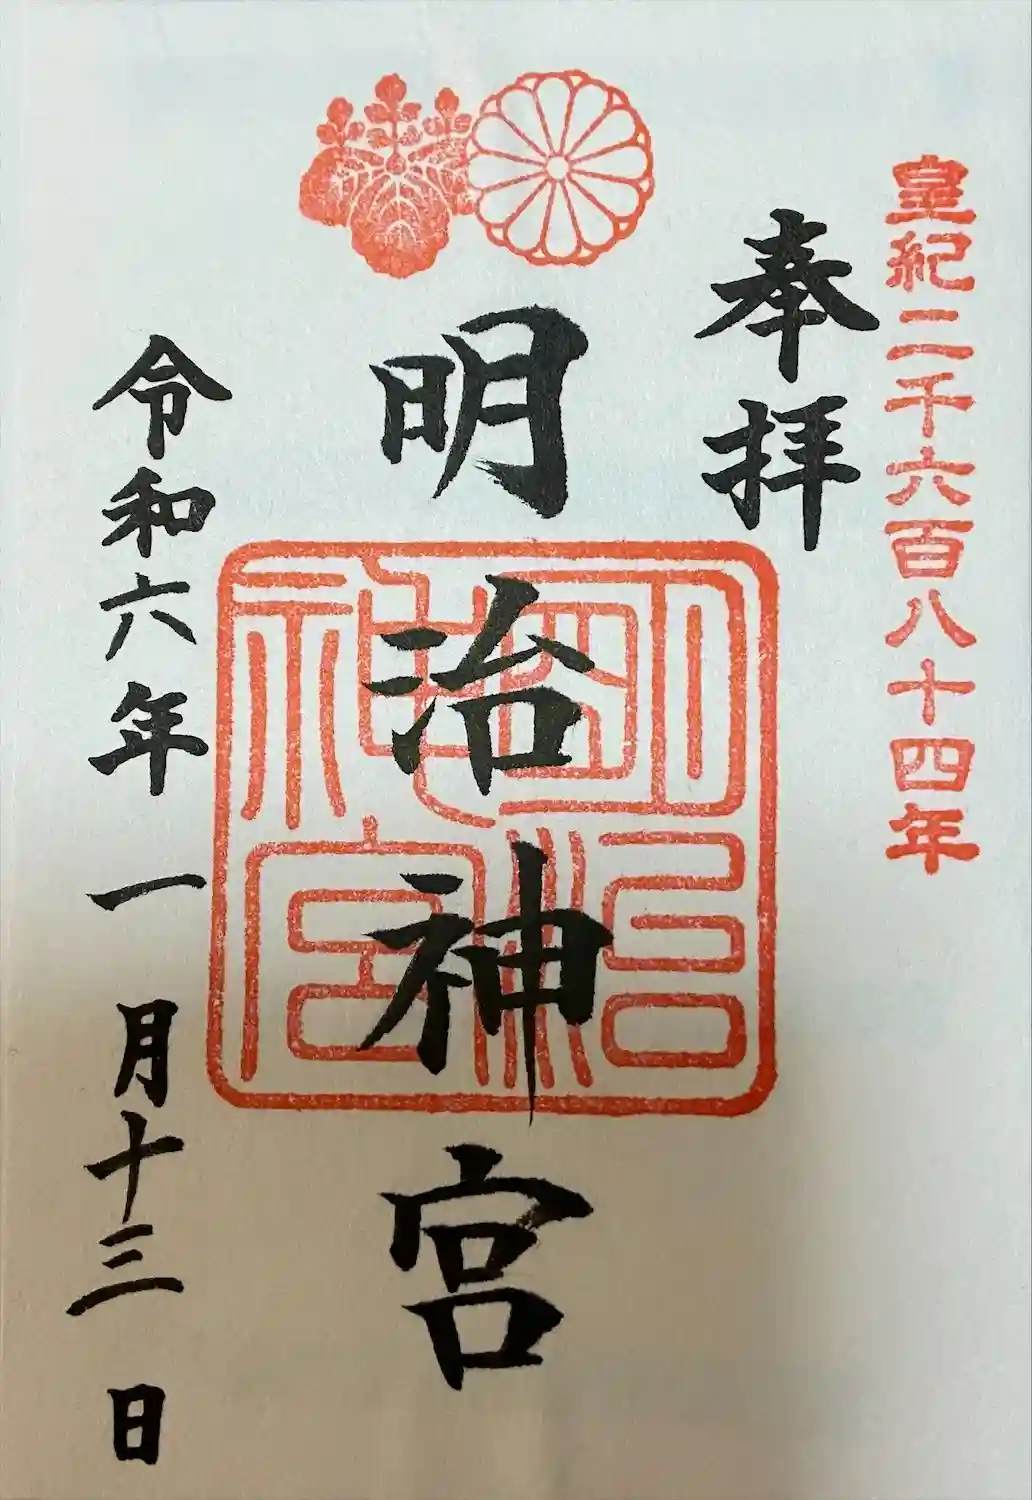 皇紀二千六百八十四年
奉拝
明治神宮
明治神宮
令和六年一月十三日